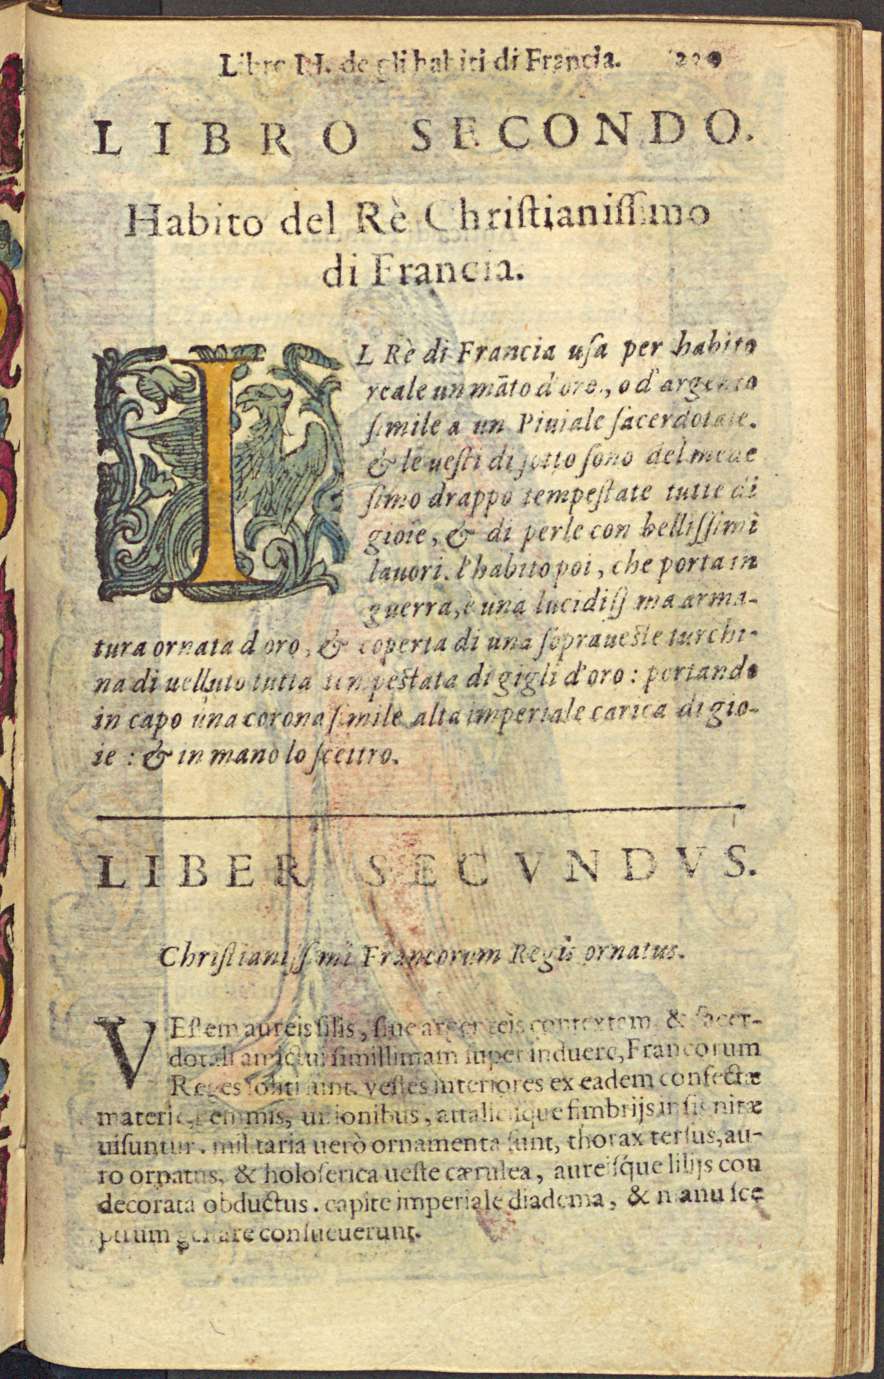 Libro II. de gli habiti di Francia.
LIBRO SECONDO.
Habito del Rè Christianissimo
di Francia.
IL Rè di Francia usa per habito
reale un mãto d'oro, o d'argento
simile a un Piuiale sacerdotale.
& le uesti di sotto sono del mede
simo drappo tempestate tutte di
gioie, & di perle con bellissimi
lauori. l'habito poi, che porta in
guerra, è una lucidissima arma-
tura ornata d'oro, & coperta di una sopraueste turchi-
na di uelluto tutta tempestata di gigli d'oro: portando
in capo una corona simile alta imperiale carica di gio-
ie: & in mano lo scettro.
LIBER SECVNDVS.
Christianissimi Francorum Regis ornatus.
VEstem aureis filis, siue argenteis contextam & sacer-
dotali amictui simillimam superinduere, Francorum
Reges soliti sunt. vestes interiores ex eadem confectæ
materie, gemmis, unionibus, attalicisque fimbrijs insignitæ
uisuntur. militaria uerò ornamenta sunt, thorax tersus, au-
ro ornatus, & holoserica ueste cærulea, aureisq́ue lilijs con
decorata obductus. capite imperiale diadema, & manu sce
ptrum gestare consueuerunt.